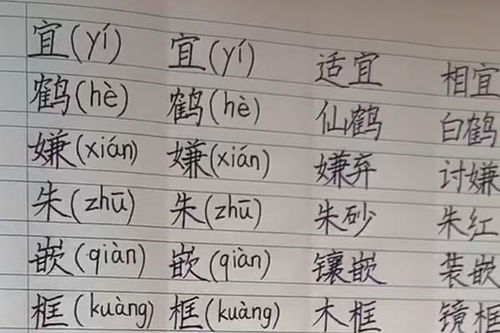 宜(yí) 宜(yí) 适宜 相宜
鹤(hè) 鹤(hè) 仙鹤 白鹤
嫌(xián) 嫌(xián) 嫌弃 讨嫌
朱(zhū) 朱(zhū) 朱砂 朱红
嵌(qiàn) 嵌(qiàn) 镶嵌 装嵌
框(kuàng) 框(kuàng) 木框 镜框